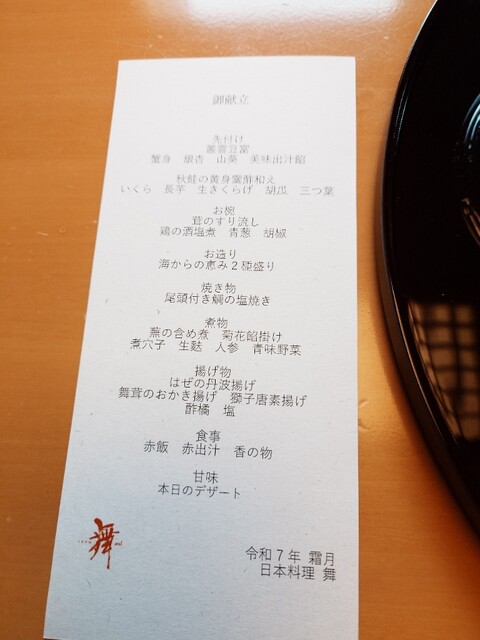 御献立
先付け
蟹身　銀杏　山葵　美味出汁餡
秋鮭の黄身霙酢和え
いくら　長芋　生きくらげ　胡瓜　三つ葉
お椀
茸のすり流し
鶏の酒塩煮　青葱　胡椒
お造り
海からの恵み２種盛り
焼き物
尾頭付き鯛の塩焼き
煮物
蕪の含め煮　菊花餡掛け
煮穴子　生麩　人参　青味野菜
揚げ物
はぜの丹波揚げ
舞茸のおかき揚げ　獅子唐素揚げ
酢橘　塩
食事
赤飯　赤出汁　香の物
甘味
本日のデザート
舞
令和７年 霜月
日本料理 舞